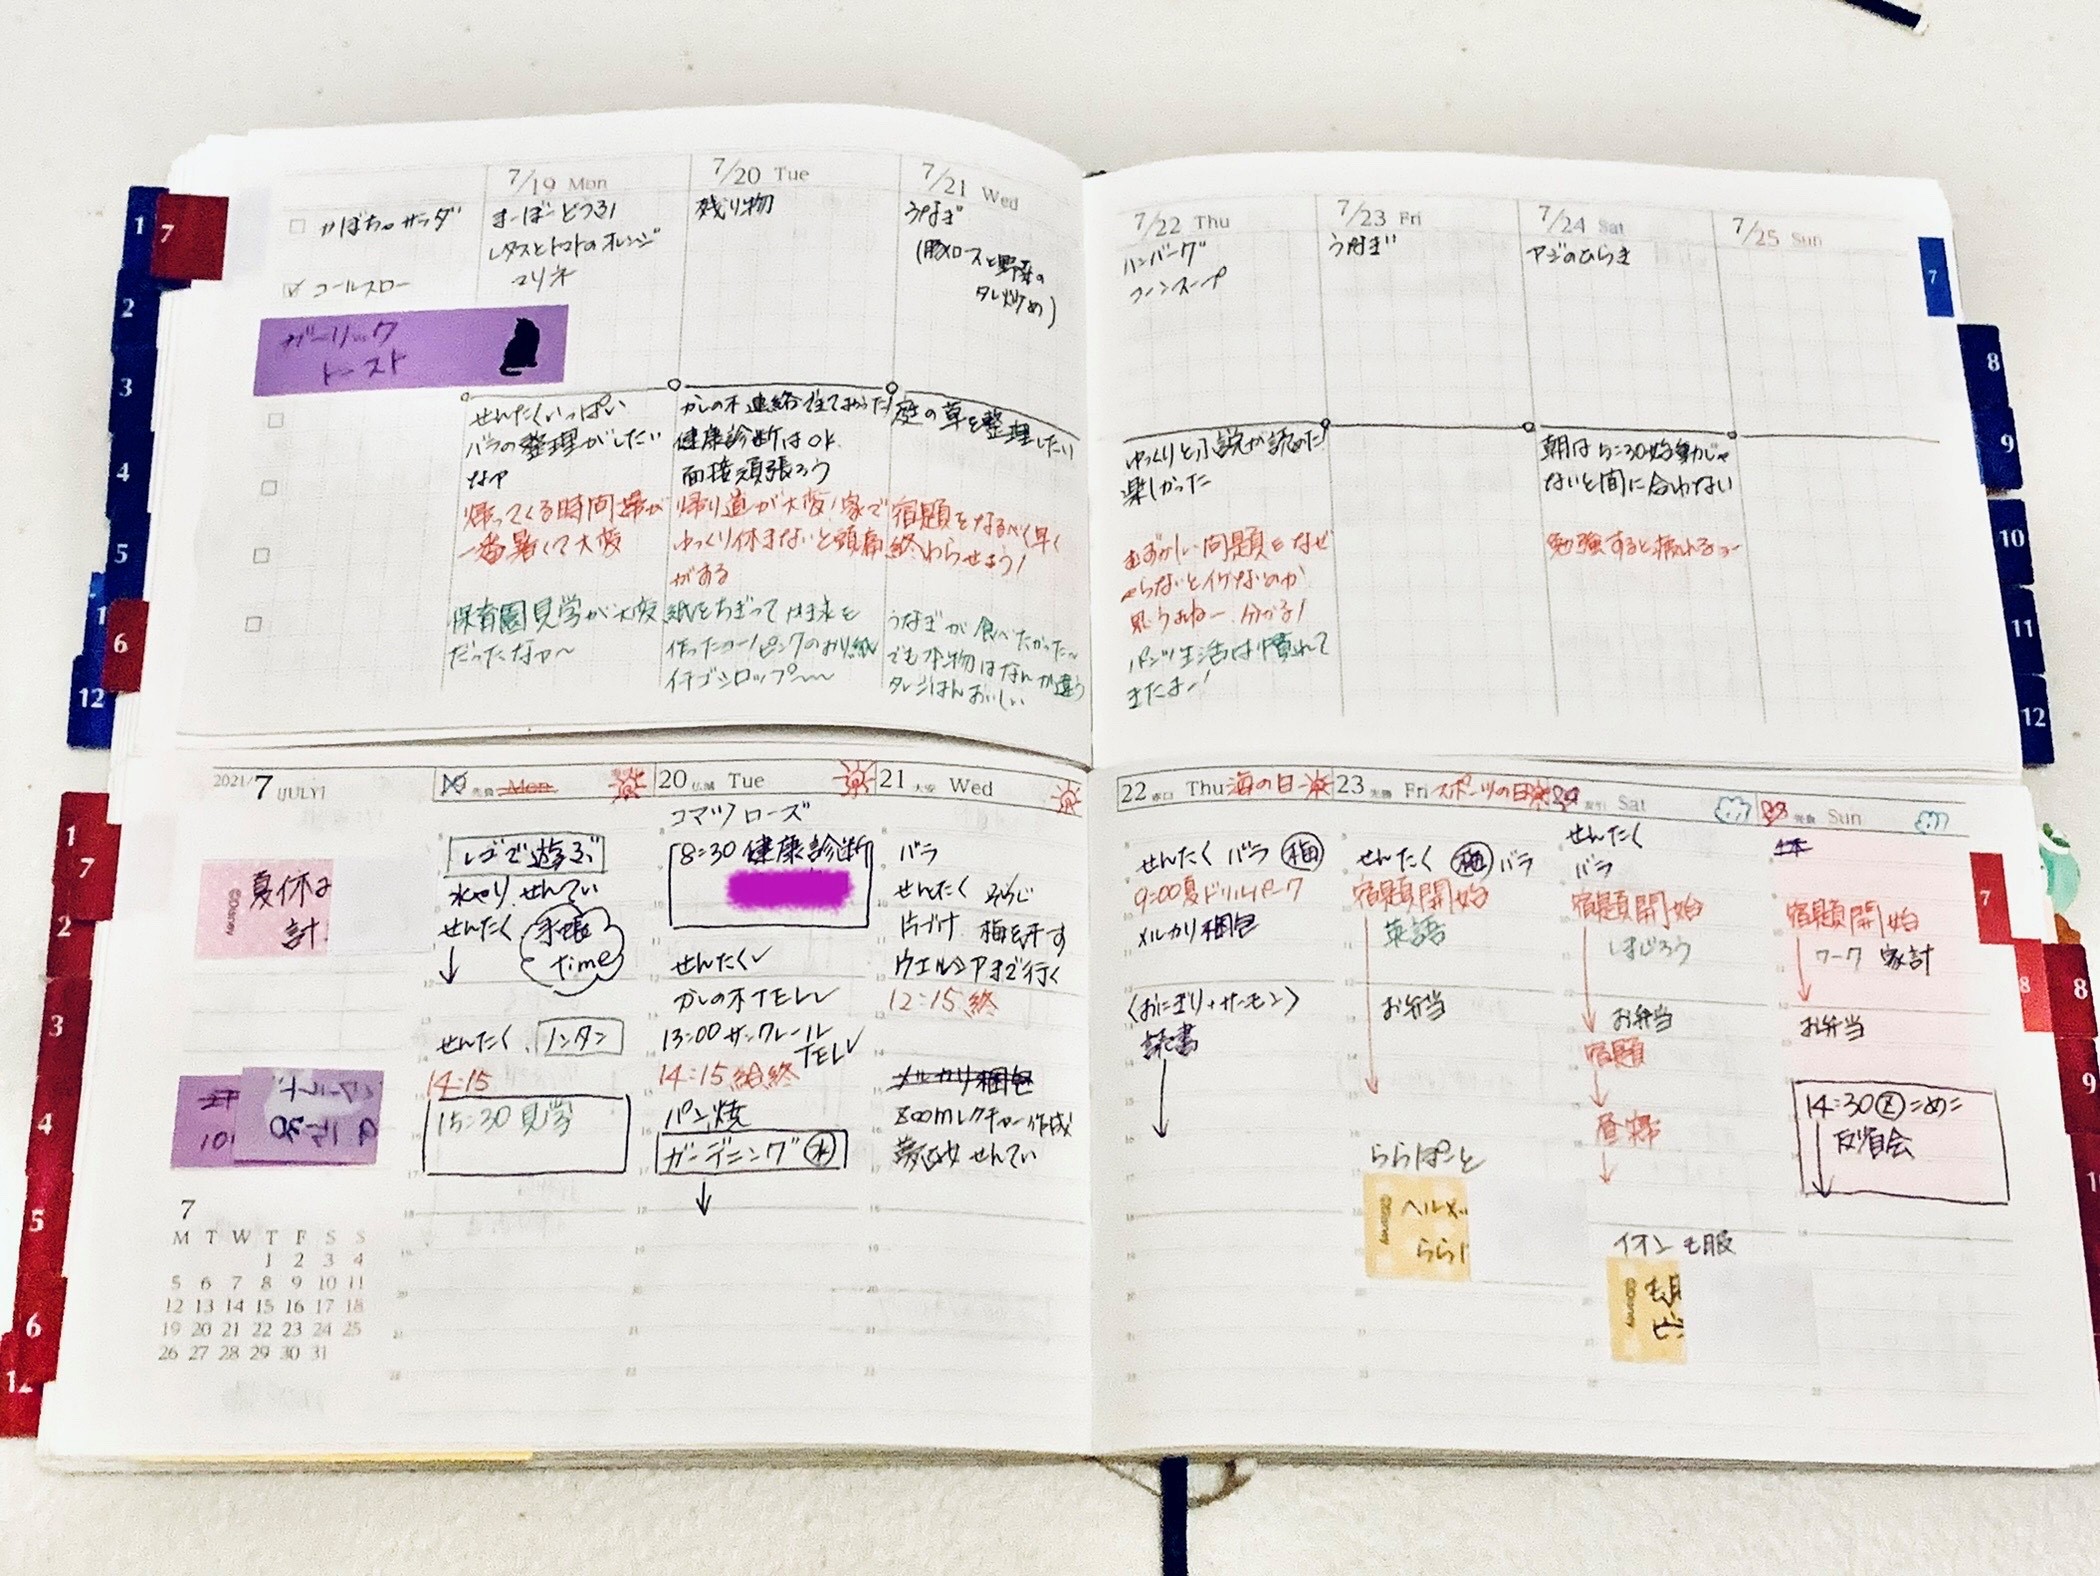 7/19 Mon
7/20 Tue
7/21 Wed
かぼちゃサラダ
コールスロー
ガーリック
トースト
まーぼーどうふ
レタスとトマトのオレンジ
マリネ
残り物
うなぎ
(豚ロースと野菜の
タレ炒め)
せんたくいっぱい
バラの整理がしたい
なァ
帰ってくる時間帯が
一番暑くて大変
保育園見学が大変
だったなァ〜
かしの木連絡
健康診断はOK
面接頑張ろう
帰り道が大変!家で
ゆっくり休まないと頭痛
がする
紙をちぎって
作ったよー!ピンクのおり紙
イチゴシロップ〜〜
庭の草を整理したい
宿題をなるべく早く
終わらせよう!
うなぎが食べたかった〜
でも本物はなんか違う
タレごはんおいしい
7/22 Thu
7/23 Fri
7/24 Sat
7/25 Sun
ハンバーグ
コーンスープ
うなぎ
アジのひらき
ゆっくりと小説が読めた
楽しかった
むずかしい問題をなぜ
やらないとイケないのか
思うよねー 分かる!
パンツ生活は慣れて
きたよー!
朝は5:30始動じゃ
ないと間に合わない
勉強すると疲れるよー
2021/7 [JULY]
先負 Mon
20 仏滅 Tue
21 大安 Wed
夏休み
計
7
M T W T F S S
1 2 3 4
5 6 7 8 9 10 11
12 13 14 15 16 17 18
19 20 21 22 23 24 25
26 27 28 29 30 31
レゴで遊ぶ
水やり せんてい
せんたく
手帳
time
せんたく ノンタン
14:15
15:30 見学
コマツローズ
8:30 健康診断
せんたく✓
かしの木TEL✓
13:00 サンクレール
TEL✓
14:15 給終
パン焼
ガーデニング 水
バラ
せんたく そうじ
片づけ 梅を干す
ウエルシアまで行く
12:15 終
メルカリ梱包
zoomレクチャー作成
夢乙女 せんてい
22 赤口 Thu 海の日
23 先勝 Fri スポーツの日
友引 Sat
先負 Sun
せんたく バラ 梅
9:00夏ドリルパーク
メルカリ梱包
〈おにぎり+サーモン〉
読書
せんたく 梅 バラ
宿題開始
英語
お弁当
ららぽーと
ヘルメッ
ららぽ
©Disney
せんたく
バラ
宿題開始
しまじろう
お弁当
宿題
昼寝
イオン 服
©Disney
宿題開始
ワーク 家計
お弁当
14:30 Z こめこ
反省会